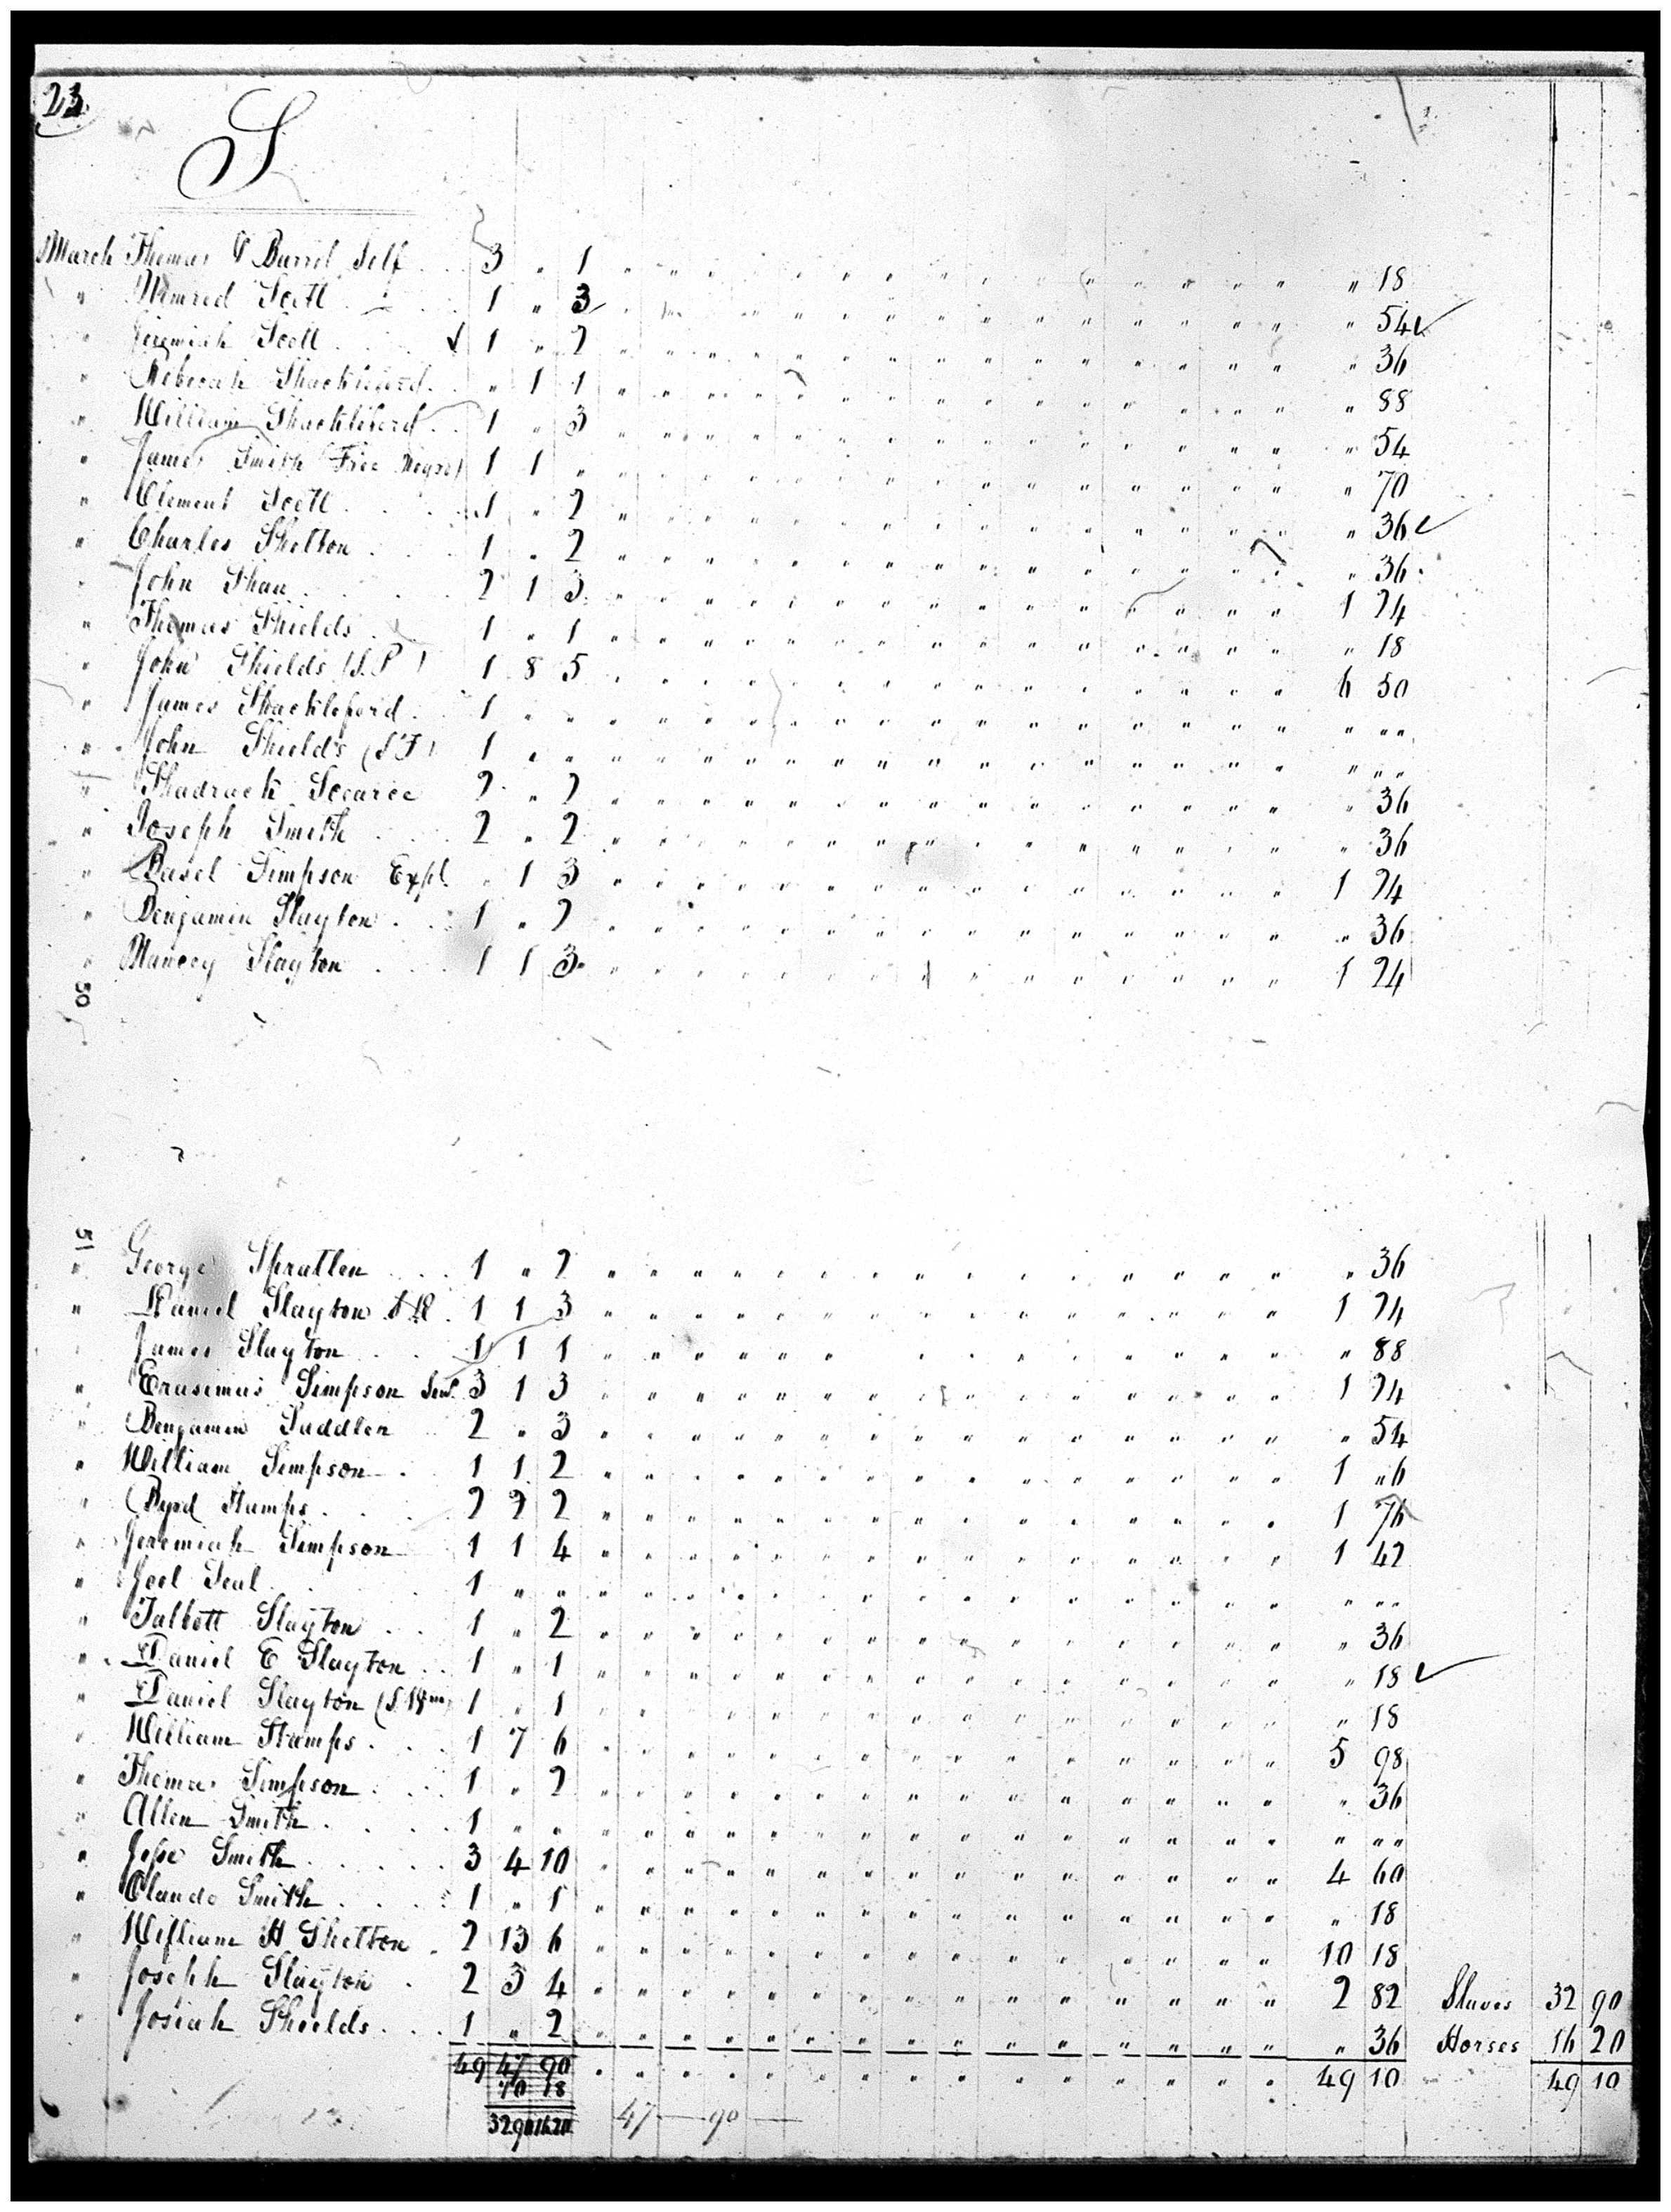 23
S
March Thomas & Burrel Self 3 " 1 " 18
" Nimrod Scott 1 " 3 " 54
" Jeremiah Scott 1 " 2 " 36
" Rebecah Shackleford " 1 1 " 88
" William Shackleford 1 " 3 " 54
" James Smith (Free Negro) 1 1 " " 70
" Clement Scott 1 " 2 " 36
" Charles Shelton 1 " 2 " 36
" John Shaw 2 1 3 1 24
" Thomas Shields 1 " 1 " 18
" John Shields (S.P) 1 8 5 6 50
" James Shackleford 1 " " " " "
" John Shields (S.F) 1 " " " " "
" Shadrack Scearce 2 " 2 " 36
" Joseph Smith 2 " 2 " 36
" Basel Simpson Expt. " 1 3 1 24
" Benjamin Slayton 1 " 2 " 36
" Nancy Slayton 1 1 3 1 24
50
51
" George Spratlen 1 " 2 " 36
" Daniel Slayton 1 1 3 1 24
" James Slayton 1 1 1 " 88
" Erasimus Simpson Senr. 3 1 3 1 24
" Benjamin Saddler 2 " 3 " 54
" William Simpson 1 1 2 1 "6
" Byrd Stamps 2 2 2 1 76
" Jeremiah Simpson 1 1 4 1 42
" Joel Seal 1 " " " " "
" Talbott Slayton 1 " 2 " 36
" Daniel E Slayton 1 " 1 " 18
" Daniel Slayton (S. Wm) 1 " 1 " 18
" William Stamps 1 7 6 5 98
" Thomas Simpson 1 " 2 " 36
" Allen Smith 1 " " " " "
" Jesse Smith 3 4 10 4 60
" Claude Smith 1 " 1 " 18
" William H Shelton 2 13 6 10 18
" Joseph Slayton 2 3 4 2 82 Slaves 32 90
" Josiah Shields 1 " 2 " 36 Horses 16 20
49 47 90 49 10 49 10
70 18
32.90 16.20 47 — 90 —